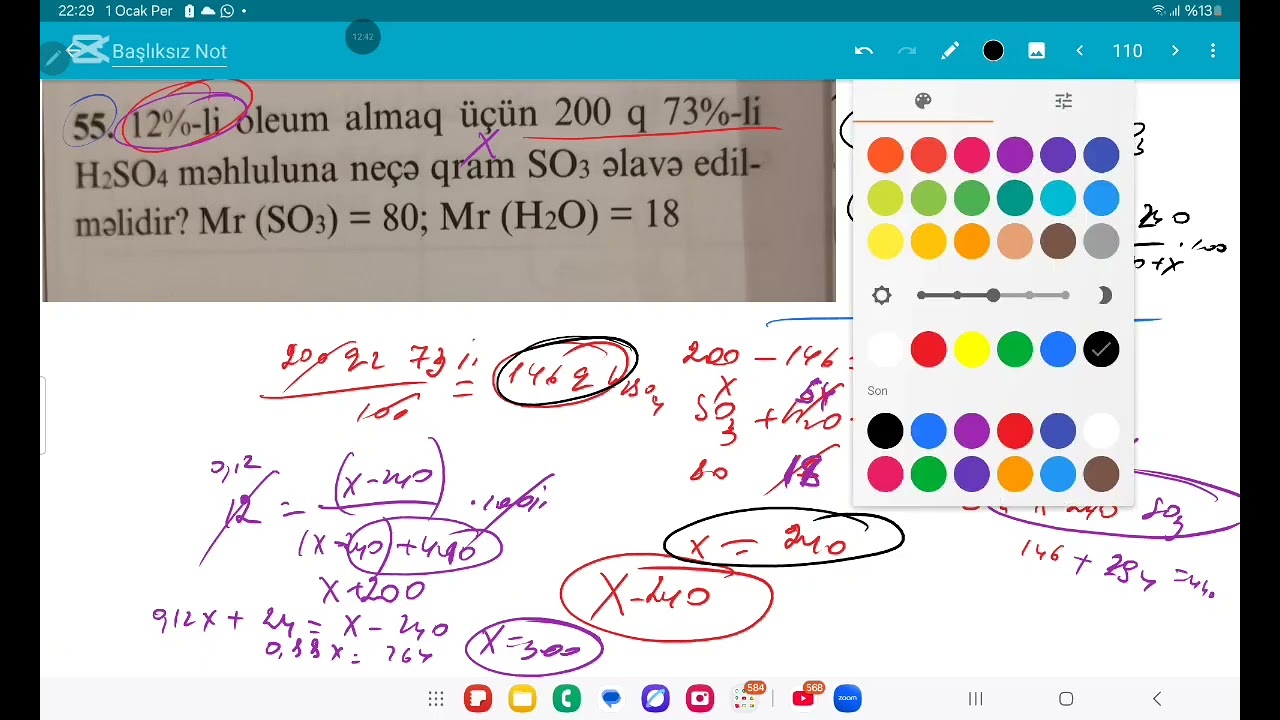 22:29 1 Ocak Per %13
12:42
Başlıksız Not 110
55. 12%-li oleum almaq üçün 200 q 73%-li
H₂SO₄ məhluluna neçə qram SO₃ əlavə edil-
məlidir? Mr (SO₃) = 80; Mr (H₂O) = 18
x
240
0+x · 100
200 q 73
100
= 146 q
200 - 146 =
x 5x
SO₃ + H₂O
80 18
0,12
12 = (x-240) · 100
(x-240) + 440
x+200
0,12x + 24 = x - 240
0,88x = 264
x=300
x = 240
x-240
240 SO₃
146 + 294 = 44
Son
584
568
zoom